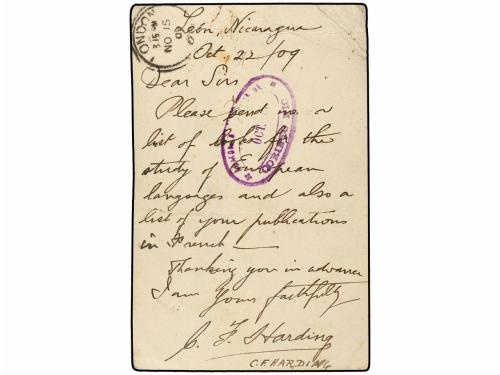 León, Nicaragua
Oct. 22/09
LONDON
3.15 PM
NO 15
09
Dear Sirs
Please send me a
list of books for the
study of European
languages and also a
list of your publications
in French —
Thanking you in advance
I am Yours faithfully
C. F. Harding
C.F. HARDING
OCT
CORINTO